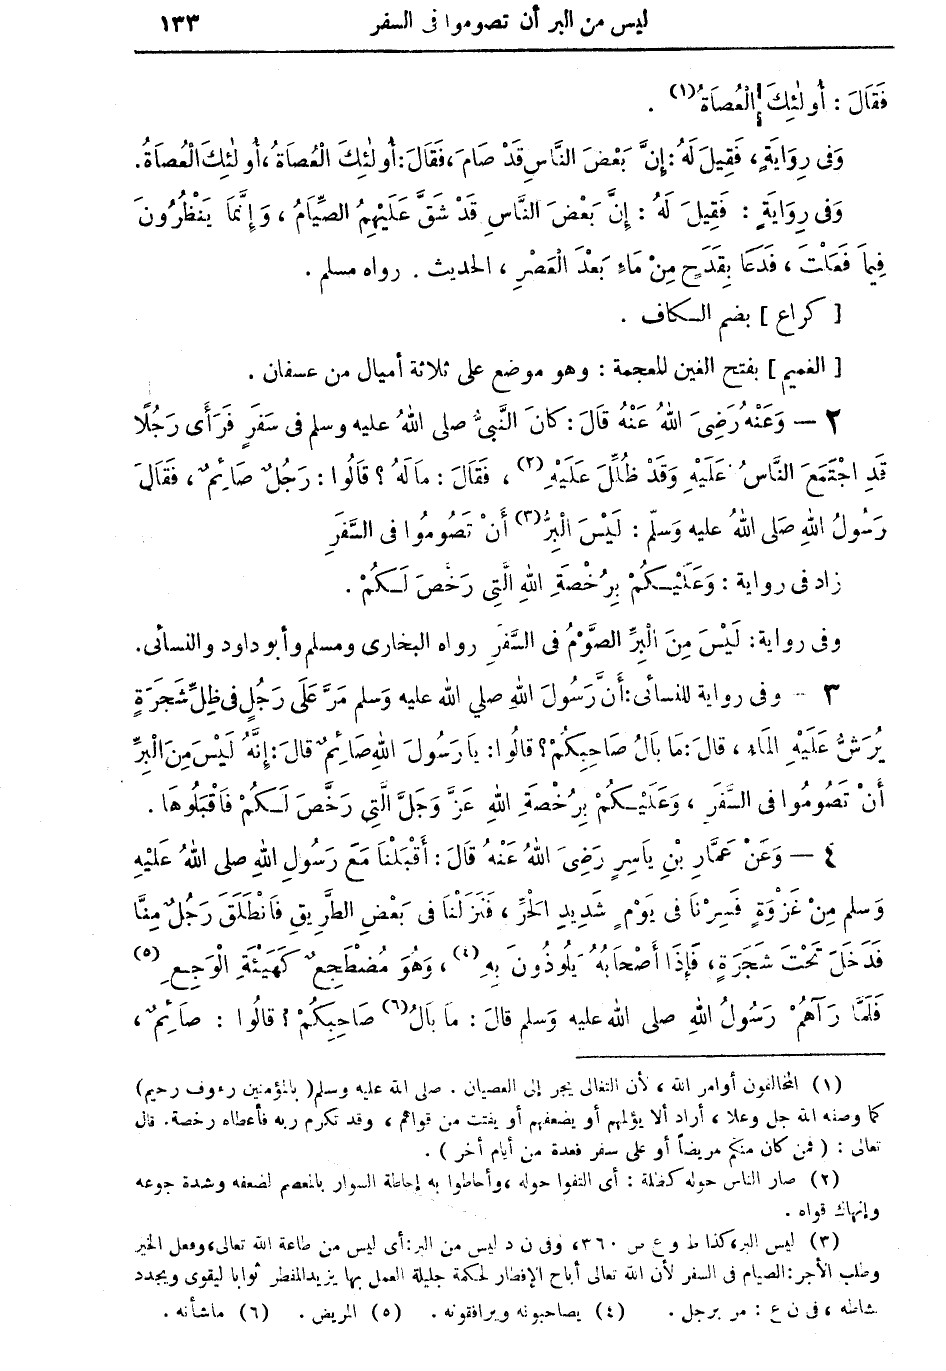 ليس من البر أن تصوموا فى السفر ١٣٣
فَقَالَ : أُولٰئِكَ الْعُصَاةُ (١) .
وَفِى رِوَايَةٍ ، فَقِيلَ لَهُ : إِنَّ بَعْضَ النَّاسِ قَدْ صَامَ ، فَقَالَ : أُولٰئِكَ الْعُصَاةُ ، أُولٰئِكَ الْعُصَاةُ .
وَفِى رِوَايَةٍ : فَقِيلَ لَهُ : إِنَّ بَعْضَ النَّاسِ قَدْ شَقَّ عَلَيْهِمُ الصِّيَامُ ، وَإِنَّمَا يَنْظُرُونَ
فِيمَا فَعَلْتَ ، فَدَعَا بِقَدَحٍ مِنْ مَاءٍ بَعْدَ الْعَصْرِ ، الحديث . رواه مسلم .
[ كراع ] بضم الكاف .
[ الغميم ] بفتح الغين المعجمة : وهو موضع على ثلاثة أميال من عسفان .
٢ — وَعَنْهُ رَضِىَ اللهُ عَنْهُ قَالَ : كَانَ النَّبِىُّ صلى اللهُ عليه وسلم فى سَفَرٍ فَرَأَى رَجُلًا
قَدِ اجْتَمَعَ النَّاسُ عَلَيْهِ وَقَدْ ظُلِّلَ عَلَيْهِ (٢) ، فَقَالَ : مالَهُ ؟ قَالُوا : رَجُلٌ صَائِمٌ ، فَقَالَ
رَسُولُ اللهِ صَلى اللهُ عليه وَسلّم : لَيْسَ الْبِرُّ (٣) أَنْ تَصُومُوا فى السَّفَرِ
زاد فى رواية : وَعَلَيْكُمْ بِرُخْصَةِ اللهِ الَّتِى رَخَّصَ لَكُمْ .
وفى رواية : لَيْسَ مِنَ الْبِرِّ الصَّوْمُ فى السَّفَرِ رواه البخارى ومسلم وأبو داود والنسائى .
٣ - وفى رواية للنسائى : أَنَّ رَسُولَ اللهِ صلي الله عليه وسلم مَرَّ عَلَى رَجُلٍ فى ظِلِّ شَجَرَةٍ
يُرَشُّ عَلَيْهِ المَاء ، قالَ : مَا بَالُ صَاحِبِكُمْ ؟ قالُوا : يَا رَسُولَ اللهِ صَائِمٌ قالَ : إِنَّهُ لَيْسَ مِنَ الْبِرِّ
أَنْ تَصُومُوا فى السَّفَرِ ، وَعَلَيْكُمْ بِرُخْصَةِ اللهِ عَزَّ وَجَلَّ الَّتِى رَخَّصَ لَكُمْ فَاقْبَلُوهَا .
٤ — وَعَنْ عَمَّارِ بْنِ يَاسِرٍ رَضِىَ اللهُ عَنْهُ قَالَ : أَقْبَلْنَا مَعَ رَسُولِ اللهِ صلى اللهُ عَلَيْهِ
وَسلم مِنْ غَزْوَةٍ فَسِرْنَا فى يَوْمٍ شَدِيدِ الحَرِّ ، فَنَزَلْنَا فى بَعْضِ الطَّرِيقِ فَانْطَلَقَ رَجُلٌ مِنَّا
فَدَخَلَ تَحْتَ شَجَرَةٍ ، فَإِذَا أَصْحَابُهُ يَلُوذُونَ بِهِ (٤) ، وَهُوَ مُضْطَجِعٌ كَهَيْئَةِ الْوَجِعِ (٥)
فَلَمَّا رَآهُمْ رَسُولُ اللهِ صلى الله عليه وَسلم قالَ : مَا بَالُ (٦) صَاحِبِكُمْ ؟ قالُوا : صَائِمٌ ،
(١) المخالفون أوامر الله ، لأن التغالى يجر إلى العصيان . صلى الله عليه وسلم ( بالمؤمنين رءوف رحيم )
كما وصفه الله جل وعلا ، أراد ألا يؤلمهم أو يضعفهم أو يفتت من قواهم ، وقد تكرم ربه فأعطاه رخصة . قال
تعالى : ( فمن كان منكم مريضاً أو على سفر فعدة من أيام أخر ) .
(٢) صار الناس حوله كظلة : أى التفوا حوله ، وأحاطوا به إحاطة السوار بالمعصم لضعفه وشدة جوعه
وإنهاك قواه .
(٣) ليس البر ، كذا ط و ع ص ٣٦٠ ، وفى ن د ليس من البر : أى ليس من طاعة الله تعالى ، وفعل الخير
وطلب الأجر : الصيام فى السفر لأن الله تعالى أباح الإفطار لحكمة جليلة العمل بها يزيد المفطر ثوابا ليقوى ويجدد
نشاطه ، فى ن ع : مر برجل . (٤) يصاحبونه ويرافقونه . (٥) المريض . (٦) ماشأنه .